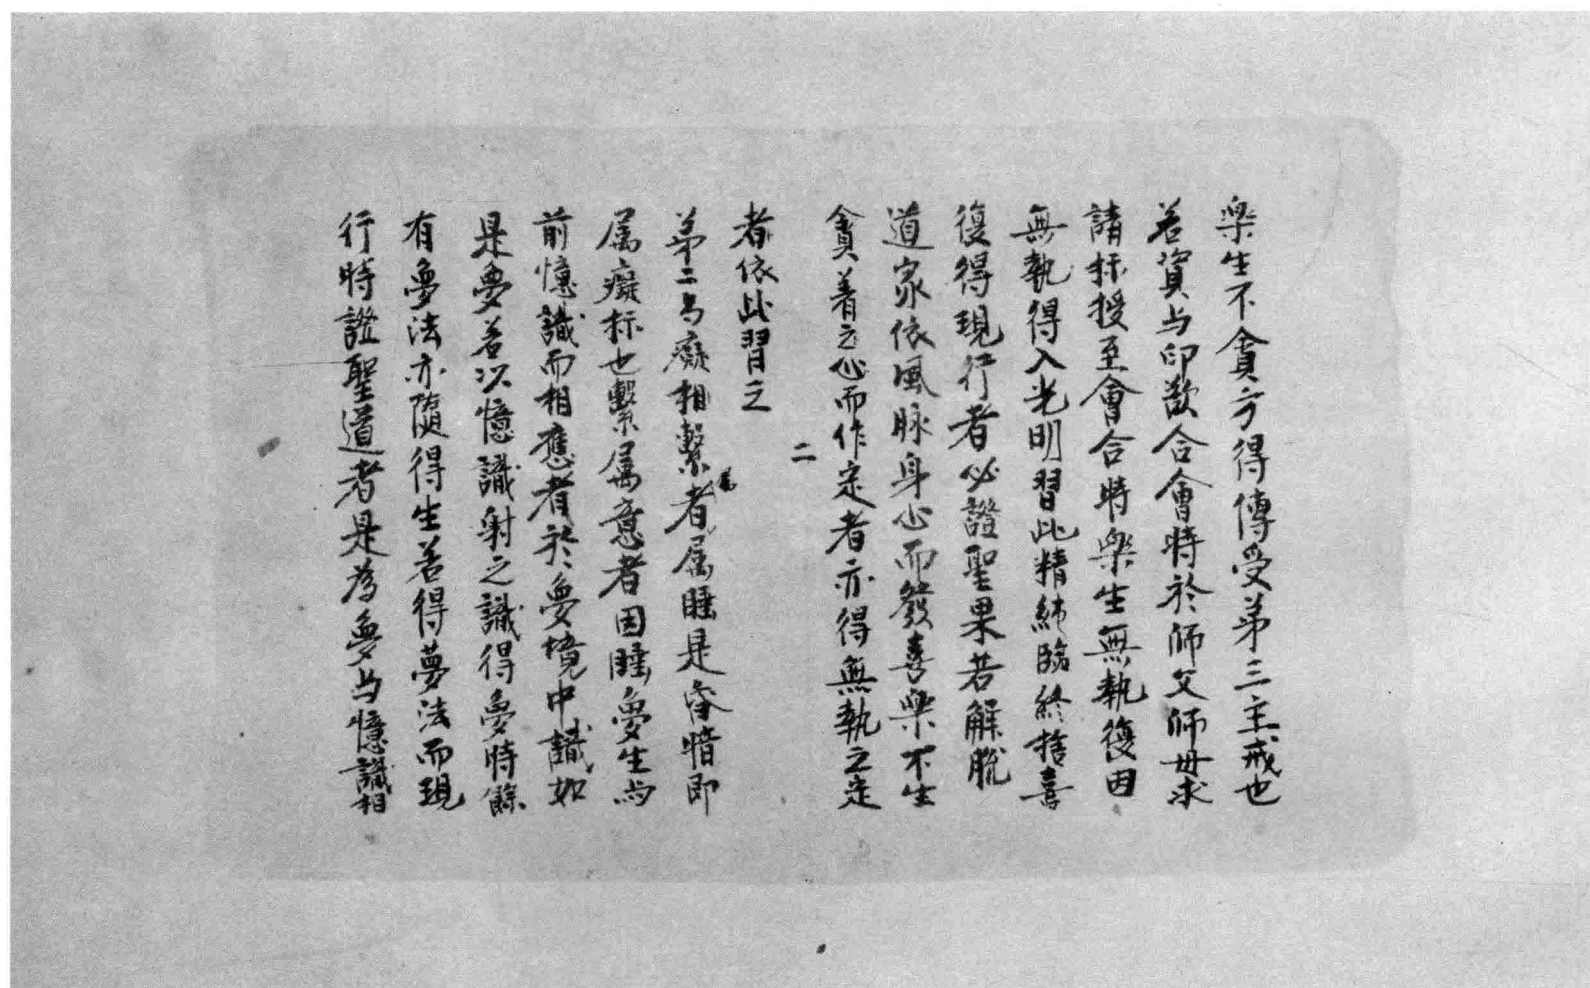 樂生不貪方得傳受第三主戒也
若資与印歡合會時於師父師母求
請标授至會合時樂生無執復因
無執得入光明習此精純臨終捨喜
復得現行者必證聖果若解脫
道家依風脉身心而發喜樂不生
貪著之心而作定者亦得無執之定
二
者依此習之
第二与癡相繫属者属睡是昏暗即
属癡标也繫属意者因睡夢生与
前憶識而相應者於夢境中識如
是夢若以憶識射之識得夢時餘
有夢法亦隨得生若得夢法而現
行時證聖道者是為夢与憶識相